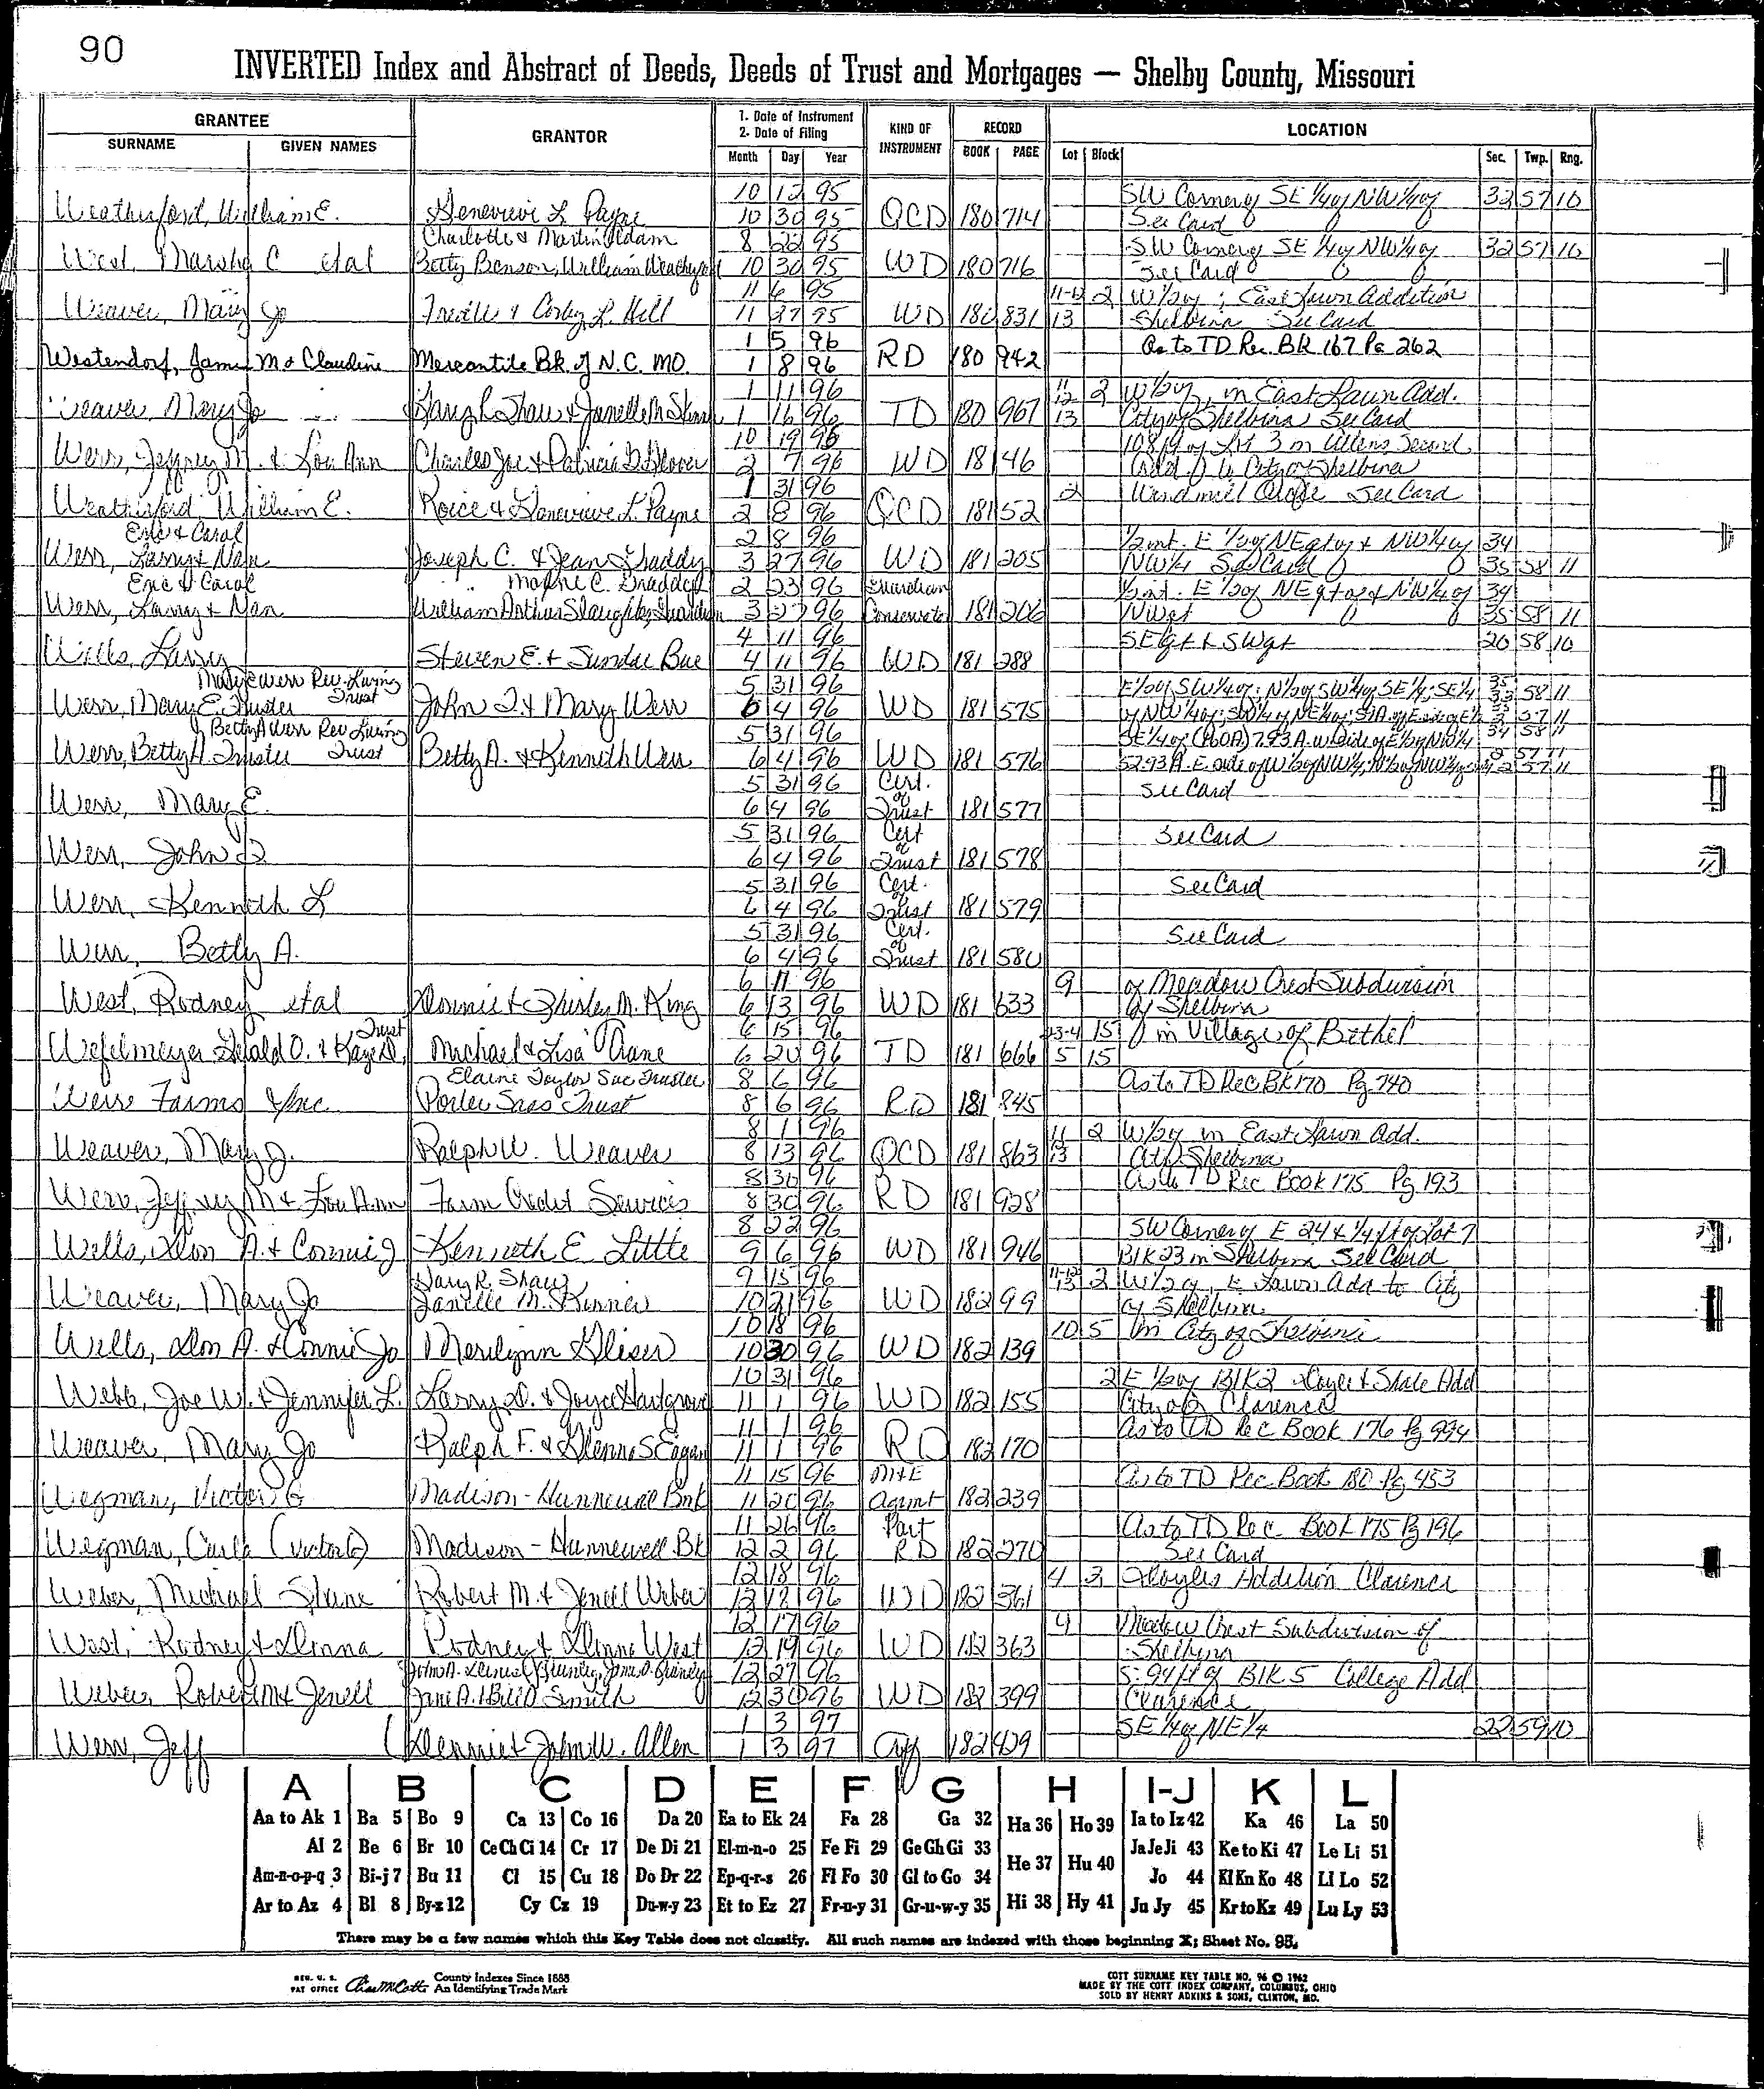 90
INVERTED Index and Abstract of Deeds, Deeds of Trust and Mortgages — Shelby County, Missouri
GRANTEE
SURNAME GIVEN NAMES
GRANTOR
1. Date of Instrument
2. Date of Filing
Month Day Year
KIND OF INSTRUMENT
RECORD
BOOK PAGE
LOCATION
Lot Block Sec. Twp. Rng.
Weatherford, William E. Genevieve L Payne 10 12 95 10 30 95 QCD 180 714 SW Corner of SE 1/4 of NW 1/4 of See Card 32 57 10
West, Marsha C etal Charlotte & Martin Adam Betty Benson, William Weatherford 8 22 95 10 30 95 WD 180 716 SW Corner of SE 1/4 of NW 1/4 of See Card 32 57 10
Weaver, Mary Jo & Corby L. Hill 11 6 95 11 27 95 WD 180 831 11-12 13 2 W/2 of ; East Lawn Addition Shelbina See Card
Westendorf, James M & Claudine Mercantile Bk. of N.C. MO. 1 5 96 1 8 96 RD 180 942 As to TD Rec. BK 167 Pg 262
Weaver, Mary Jo Gary R Shaw & Janelle M 1 11 96 1 16 96 TD 180 967 11 12 13 2 W/2 of, in East Lawn Add. City of Shelbina See Card
Werr, Jeffrey M. & Lou Ann Charles Joe & Patricia D Glover 10 19 96 2 7 96 WD 181 46 of Lot 3 in Allens Second Add. to City of Shelbina
Weatherford, William E. Roice & Genevieve L. Payne 1 31 96 2 8 96 QCD 181 52 2 Windmill See Card
Eric & Carol
Werr, Larry & Nan Joseph C. & Jean Graddy 2 8 96 3 27 96 WD 181 205 1/2 int. E 1/2 of NE qt of & NW 1/4 of NW 1/4 See Card 34 35 58 11
Eric & Carol
Werr, Larry & Nan Maxine C. Graddy William Arthur Slaughter, Guardian 2 23 96 3 27 96 Guardian Conservator 181 206 1/2 int. E 1/2 of NE qt of & NW 1/4 of NW qt 34 35 58 11
Wills, Larry Steven E. & Sundae Bue 4 11 96 4 11 96 WD 181 288 SE qt & SW qt 20 58 10
Mary E Werr Rev. Living Trust
Werr, Mary E. Trustee John I. & Mary Werr 5 31 96 6 4 96 WD 181 575 E 1/2 of SW 1/4 of; N 1/2 of SW 1/4 of SE 1/4; SE 1/4 of NW 1/4 of; SW 1/4 of NE 1/4 of;
Betty A Werr Rev Living Trust
Werr, Betty A. Trustee Betty A. & Kenneth Werr 5 31 96 6 4 96 WD 181 576 SE 1/4 of (160A) 7.93 A. W Side of E 1/2 of NW 1/4
Werr, Mary E. 5 31 96 6 4 96 Cert. of Trust 181 577 See Card
Werr, John I 5 31 96 6 4 96 Cert of Trust 181 578 See Card
Werr, Kenneth L 5 31 96 6 4 96 Cert. of Trust 181 579 See Card
Werr, Betty A. 5 31 96 6 4 96 Cert. of Trust 181 580 See Card
West, Rodney etal Donnie & Shirley M. King 6 11 96 6 13 96 WD 181 633 9 of Meadow Crest Subdivision of Shelbina
Gerald O. & Kaye D. Trust Michael & Lisa Crane 6 15 96 6 20 96 TD 181 666 2-3-4 15 5 15 in Village of Bethel
Werr Farms Inc. Elaine Taylor Suc Trustee Porter Sass Trust 8 6 96 8 6 96 RD 181 845 As to TD Rec BK 170 Pg 740
Weaver, Mary J. Ralph W. Weaver 8 1 96 8 13 96 QCD 181 863 11 13 2 W/2 of in East Lawn Add. City Shelbina
Werr, Jeffrey M & Lou Ann Farm Credit Services 8 30 96 8 30 96 RD 181 928 As to TD Rec Book 175 Pg 193
Wells, Don A. & Connie J Kenneth E Little 8 22 96 9 6 96 WD 181 946 SW Corner of E 24 & 1/4 ft of Lot 7 Blk 23 in Shelbina See Card
Weaver, Mary Jo Gary R. Shaw Janelle M. Kinner 9 15 96 10 21 96 WD 182 99 11-12 13 2 W/2 of, E Lawn Add to City of Shelbina
Wells, Don A. & Connie Jo Marilynn Gliser 10 18 96 10 30 96 WD 182 139 10 5 in City of Shelbina
Webb, Joe W. & Jennifer L. Larry D. & Joyce Hartgrove 10 31 96 11 1 96 WD 182 155 2 E 1/2 of BlK 2 & Shale Add City of Clarence
Weaver, Mary Jo Ralph F. & Glenna S Eagan 11 1 96 11 1 96 RD 182 170 As to TD Rec Book 176 Pg 994
Wegman, Victor G Madison - Hunnewell Bnk 11 15 96 11 20 96 M&E Agmnt 182 239 As to TD Rec. Book 180 Pg 453
Wegman, Carla (Victor G) Madison - Hunnewell Bk 11 26 96 12 2 96 Part RD 182 270 As to TD Rec Book 175 Pg 196 See Card
Weber, Michael Shane Robert M. & Jenell Weber 12 18 96 WD 182 361 4 3 Addition Clarence
West, Rodney & Donna Rodney & Donna West 12 17 96 12 19 96 WD 182 363 9 Meadow Crest Subdivision of Shelbina
Weber, Robert M & Jenell Jane A. & Bill D Smith 12 27 96 12 30 96 WD 182 399 S. 94 ft of Blk. 5 College Add Clarence
Werr, Jeff Dennie & John W. Allen 1 3 97 1 3 97 Aff 182 429 SE 1/4 of NE 1/4 22 59 10
A B C D E F G H I-J K L
Aa to Ak 1 Ba 5 Bo 9 Ca 13 Co 16 Da 20 Ea to Ek 24 Fa 28 Ga 32 Ha 36 Ho 39 Ia to Iz 42 Ka 46 La 50
Al 2 Be 6 Br 10 Ce Ch Ci 14 Cr 17 De Di 21 El-m-n-o 25 Fe Fi 29 Ge Gh Gi 33 He 37 Hu 40 Ja Je Ji 43 Ke to Ki 47 Le Li 51
Am-n-o-p-q 3 Bi-j 7 Bu 11 Cl 15 Cu 18 Do Dr 22 Ep-q-r-s 26 Fl Fo 30 Gl to Go 34 Jo 44 Kl Kn Ko 48 Ll Lo 52
Ar to Az 4 Bl 8 By-z 12 Cy Cz 19 Du-w-y 23 Et to Ez 27 Fr-u-y 31 Gr-u-w-y 35 Hi 38 Hy 41 Ju Jy 45 Kr to Kz 49 Lu Ly 53
There may be a few names which this Key Table does not classify. All such names are indexed with those beginning X; Sheet No. 95.
REG. U. S. PAT OFFICE County Indexes Since 1888 An Identifying Trade Mark
COTT SURNAME KEY TABLE NO. 96 © 1962
MADE BY THE COTT INDEX COMPANY, COLUMBUS, OHIO
SOLD BY HENRY ADKINS & SONS, CLINTON, MO.